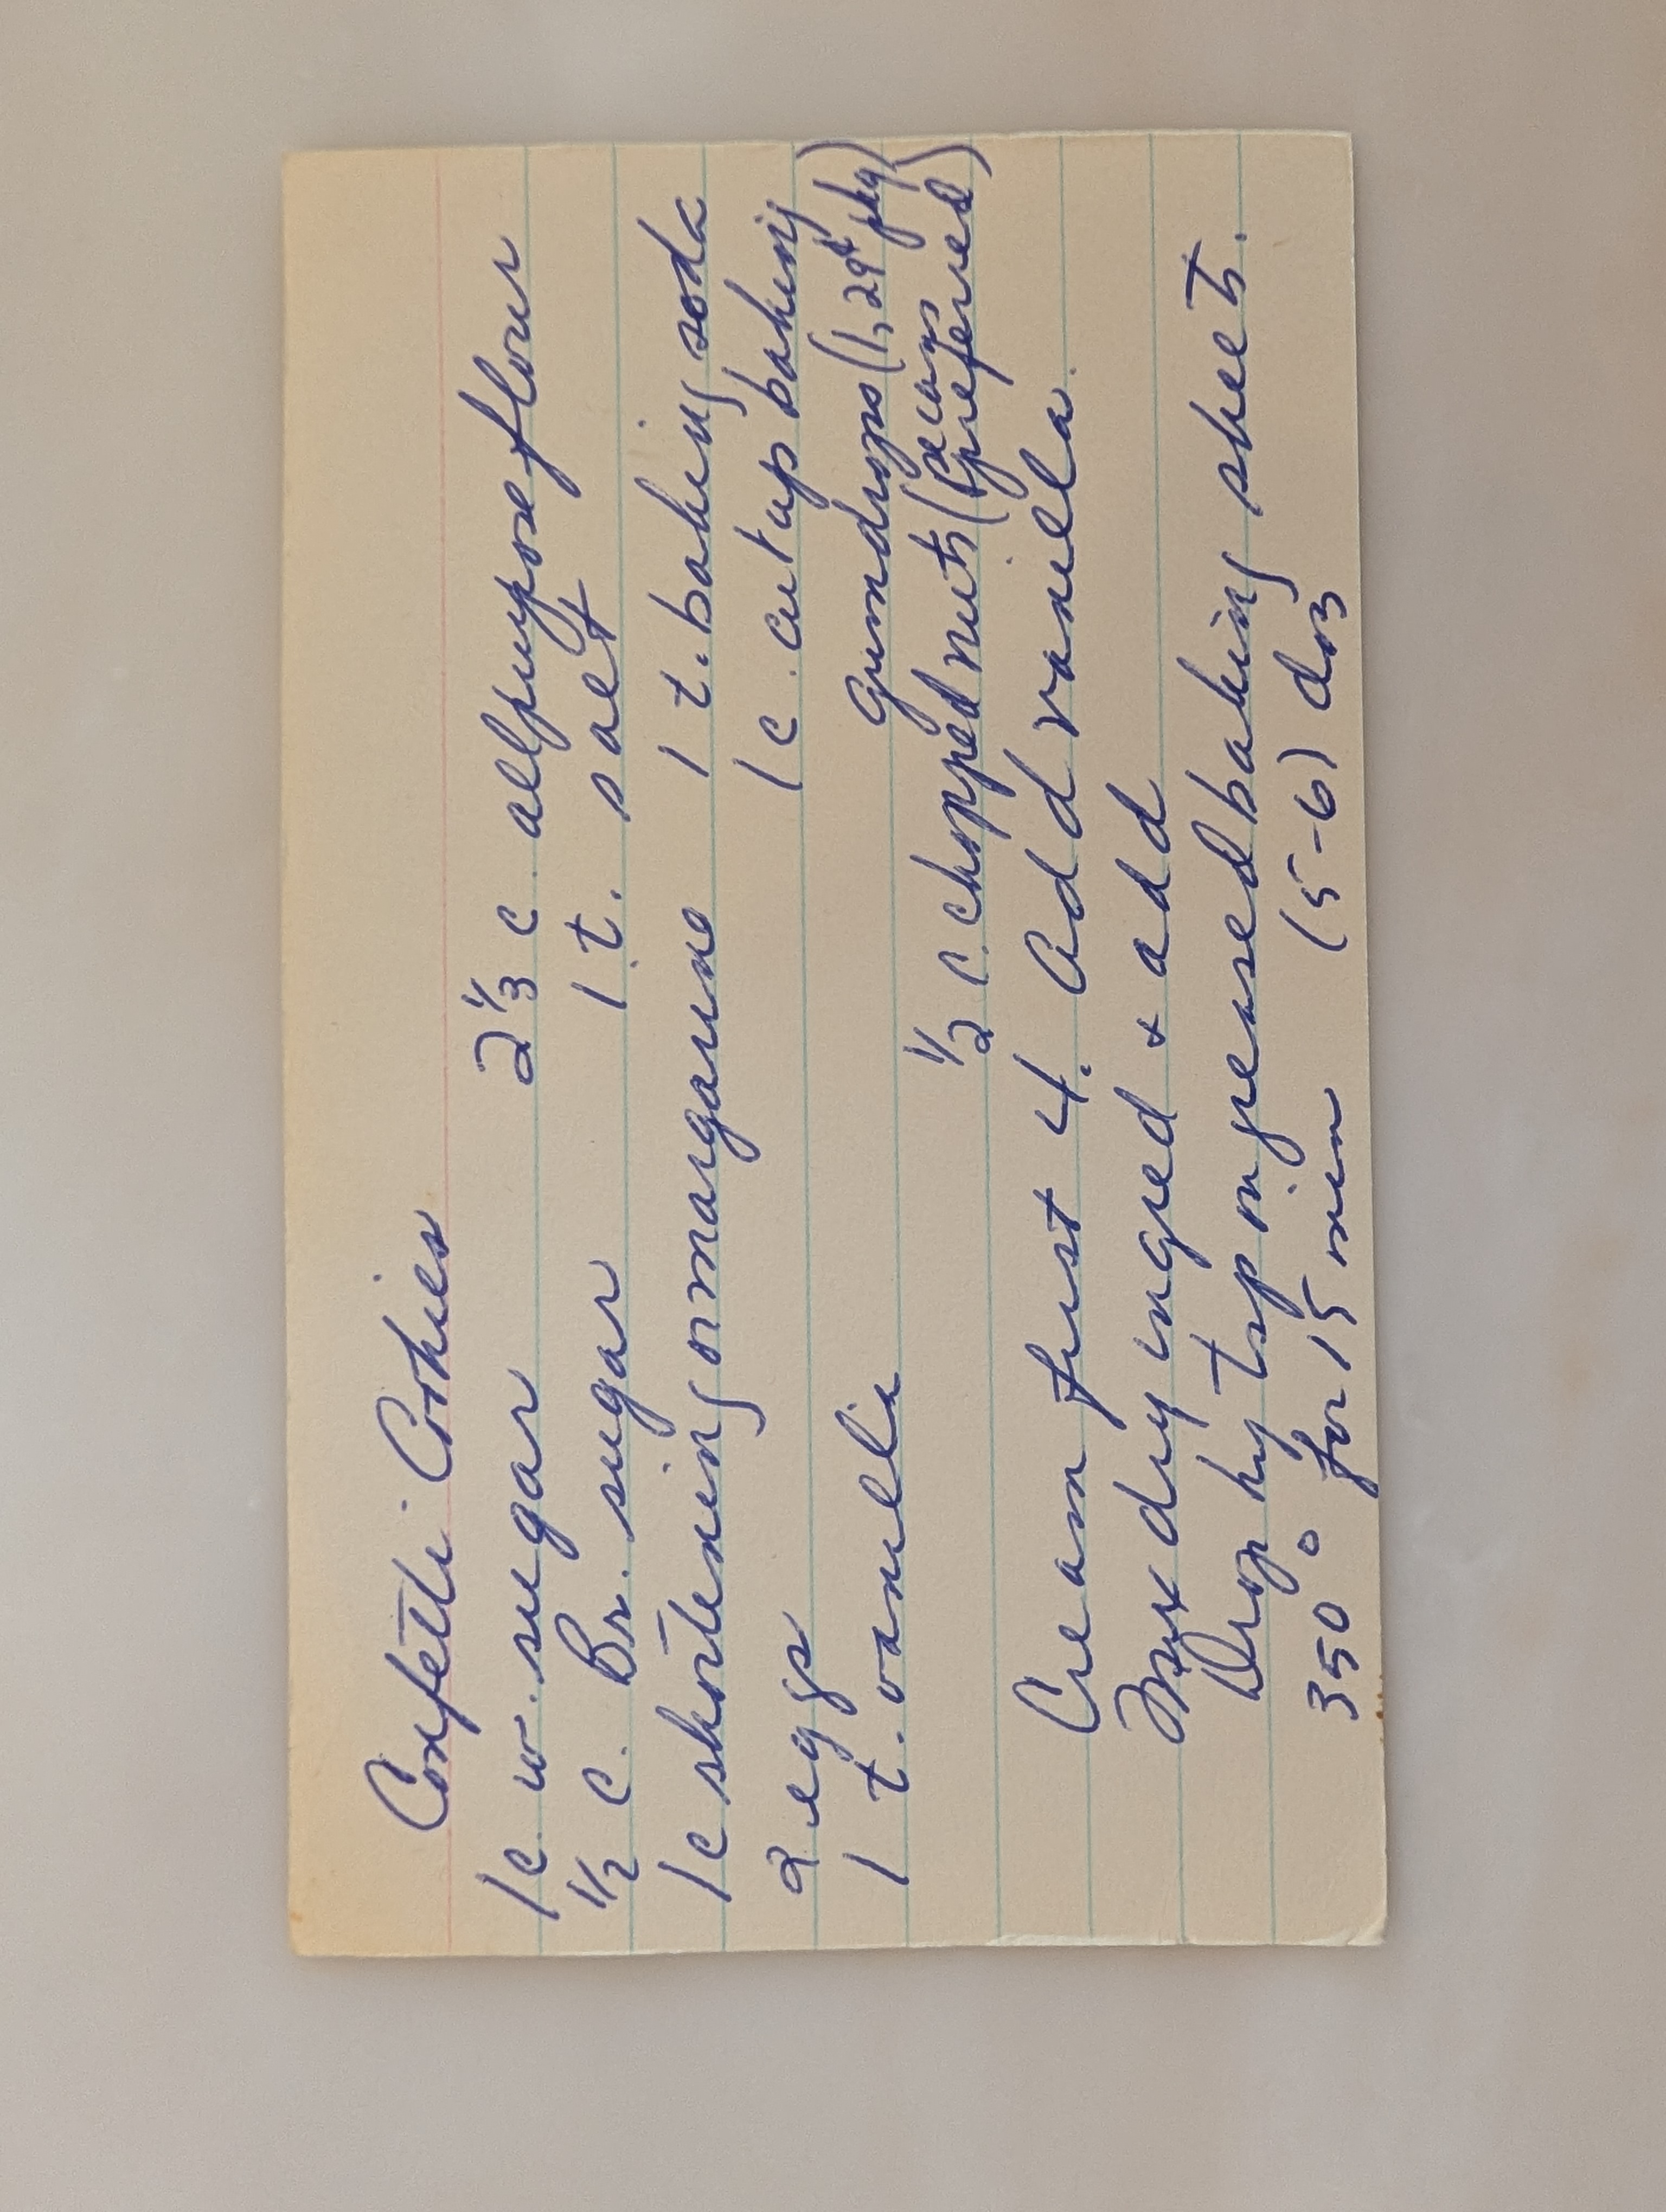 Confetti Cookies
1 c. w. sugar 2 1/3 c. allpurpose flour
1/2 c. Br. sugar 1 t. salt
1 c shortening or margarine 1 t. baking soda
2 eggs 1 c. cut up baking
1 t. vanilla gumdrops (1, 29¢ pkg)
1/2 c. chopped nuts (pecans preferred)
Cream first 4. Add vanilla.
Mix dry ingred + add
Drop by tsp on greased baking sheet.
350° for 15 min (5-6) doz